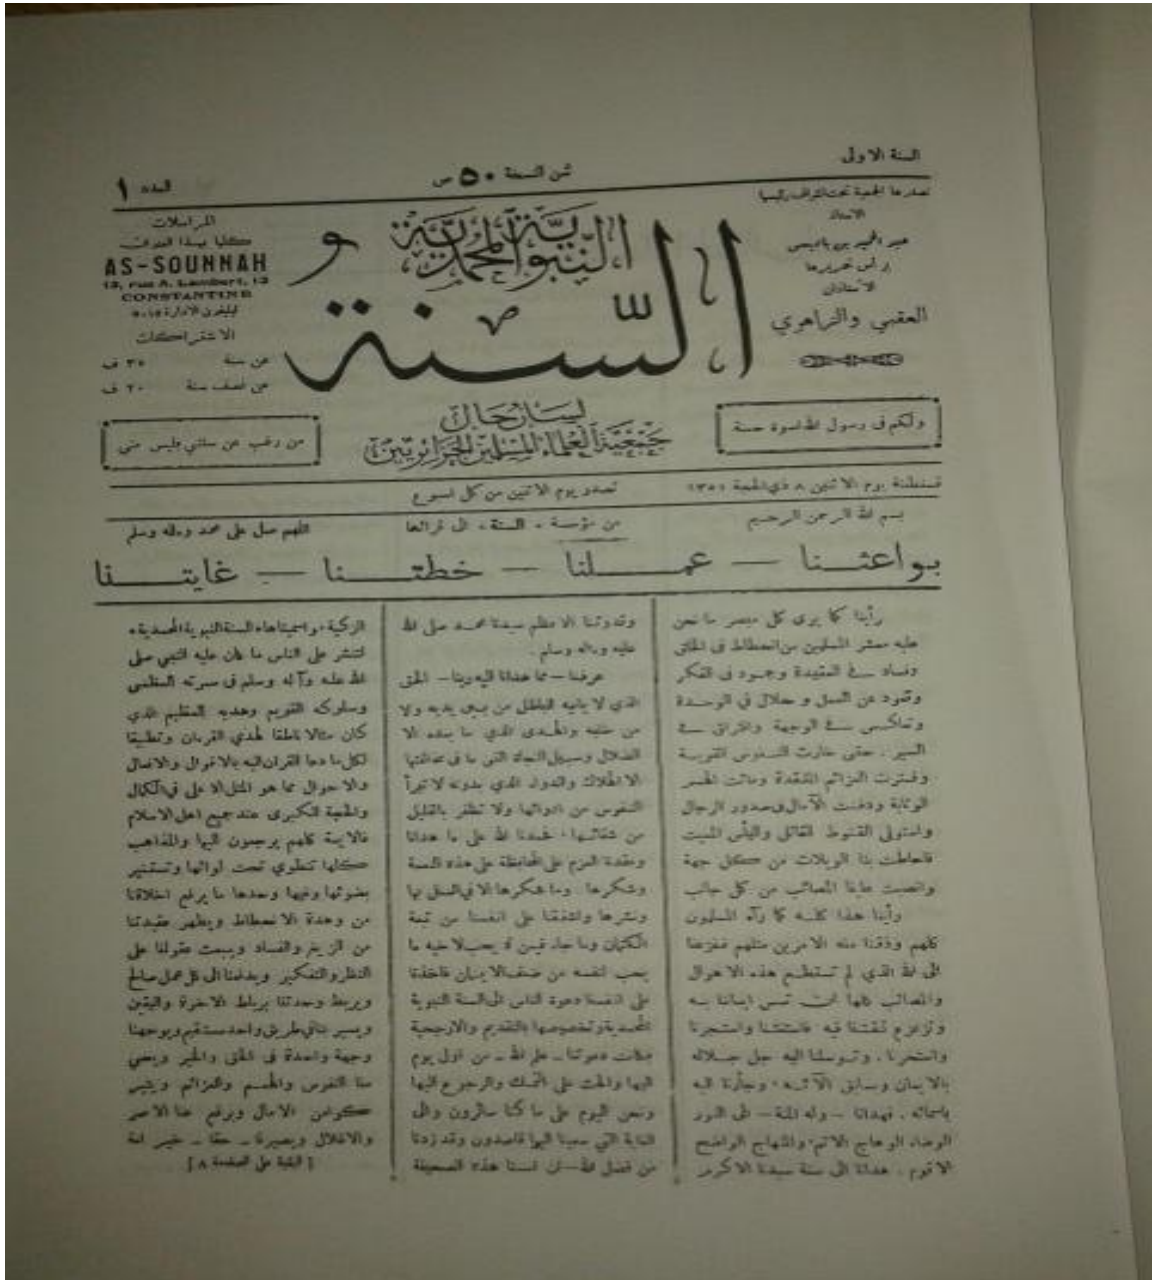 السنة الاولى
ثمن النسخة ٥٠ ص
العدد ١
تصدرها الجمعية تحت اشراف رئيسها
الاستاذ
عبد الحميد بن باديس
يرأس تحريرها
الأستاذان
العقبي والزاهري
السنة النبوية المحمدية
المراسلات
كلها بهذا العنوان
AS-SOUNNAH
13, rue A. Lambert, 13
CONSTANTINE
تيليفون الادارة ١٥-٥
الاشتراكات
عن سنة ٣٥ ف
عن نصف سنة ٢٠ ف
لسان حال
جمعية العلماء المسلمين الجزائريين
ولكم في رسول الله اسوة حسنة
من رغب عن سنتي فليس مني
قسنطينة يوم الاثنين ٨ ذي الحجة ١٣٥١
تصدر يوم الاثنين من كل اسبوع
بسم الله الرحمن الرحيم
من مؤسسة «السنة» الى قرائها
اللهم صل على محمد وءاله وسلم
بواعثنا — عملنا — خطتنا — غايتنا
رأينا كما يرى كل مبصر ما نحن
عليه معشر المسلمين من انحطاط في الخلق
وفساد في العقيدة وجمود في الفكر
وقعود عن العمل و حلال في الوحدة
وتعاكس في الوجهة وافتراق في
السير . حتى خارت النفوس القوية
وفترت العزائم المتقدة وماتت الهمم
الوثابة ودفنت الآمال في صدور الرجال
واستولى القنوط القاتل واليأس المميت
فأحاطت بنا الويلات من كل جهة
وانصبت علينا المصائب من كل جانب
رأينا هذا كله كما رآه المسلمون
كلهم وذقنا منه الامرين مثلهم ففزعنا
الى الله الذي لم تستطع هذه الاهوال
والمصائب كلها ان تمس ايماننا به
وتزعزع ثقتنا فيه فاستغثنا واستجرنا
واستخرنا . وتوسلنا اليه جل جلاله
بالايمان وسابق الآئه وجأرنا اليه
باسمائه . فهدانا — وله المنة — الى النور
الوضاء الوهاج الاتم والمنهاج الواضح
الاقوم . هدانا الى سنة سيدنا الاكرم
وقدوتنا الاعظم سيدنا محمد صلى الله
عليه وءاله وسلم .
عرفنا — مما هدانا اليه ربنا — الحق
الذي لا ياتيه الباطل من بين يديه ولا
من خلفه والهدى الذي ما بعده الا
الضلال وسبيل النجاة التي ما في مخالفتها
الا الهلاك والدواء الذي بدونه لا تبرأ
النفوس من ادوائها ولا تظفر بالقليل
من شفائها . فحمدنا الله على ما هدانا
وعقدنا العزم على المحافظة على هذه النعمة
وشكرها . وما شكرها الا في العمل بها
ونشرها واشفقنا على انفسنا من تبعة
الكتمان وما جاء فيمن لا يحب لاخيه ما
يحب لنفسه من ضعف الايمان فاخذنا
على انفسنا دعوة الناس الى السنة النبوية
المحمدية وتخصيصها بالتقديم والارجحية
فكانت دعوتنا — علم الله — من اول يوم
اليها والحث على التمسك والرجوع اليها
ونحن اليوم على ما كنا سائرون والى
الغاية التي سعينا اليها قاصدون وقد زدنا
من فضل الله — ان اسسنا هذه الصحيفة
الزكية واسميناها «السنة النبوية المحمدية»
لتنشر على الناس ما كان عليه النبي صلى
الله عليه وآله وسلم في سيرته العظمى
وسلوكه القويم وهديه العظيم الذي
كان مثالا ناطقا لهدي القرءان وتطبيقا
لكل ما دعا القرءان اليه بالاقوال والافعال
والاحوال مما هو المثل الاعلى في الكمال
والحجة الكبرى عند جميع اهل الاسلام
فالايمة كلهم يرجعون اليها والمذاهب
كلها تنطوي تحت لوائها وتستنير
بضوئها وفيها وحدها ما يرفع اخلاقنا
من وهدة الانحطاط ويطهر عقيدتنا
من الزيغ والفساد ويبعث عقولنا على
النظر والتفكير ويدفعنا الى كل عمل صالح
ويربط وحدتنا برباط الاخوة واليقين
ويسير بنا في طريق واحد مستقيم ويوجهنا
وجهة واحدة في الحق والخير ويحي
منا النفوس والهمم والعزائم ويثير
كوامن الآمال ويرفع عنا الاصر
والاغلال ويصيرنا — حقا — خير امة
[ البقية على الصفحة ٨ ]